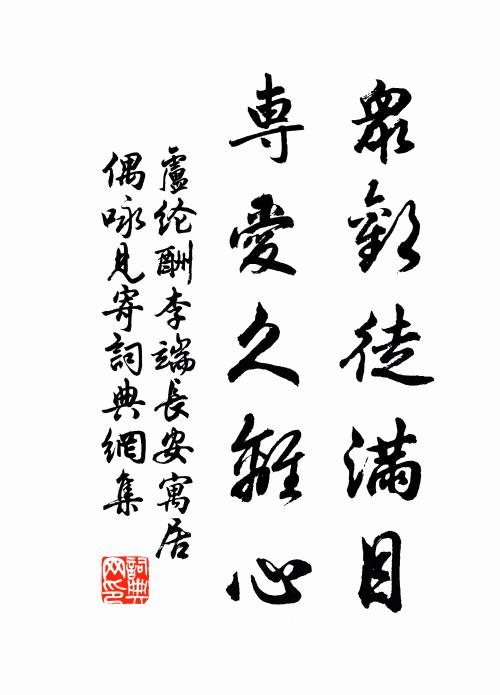 眾歡徒滿目
専愛久離心
盧纶酬李端長安寓居
偶咏見寄詞典網集
詞典网印